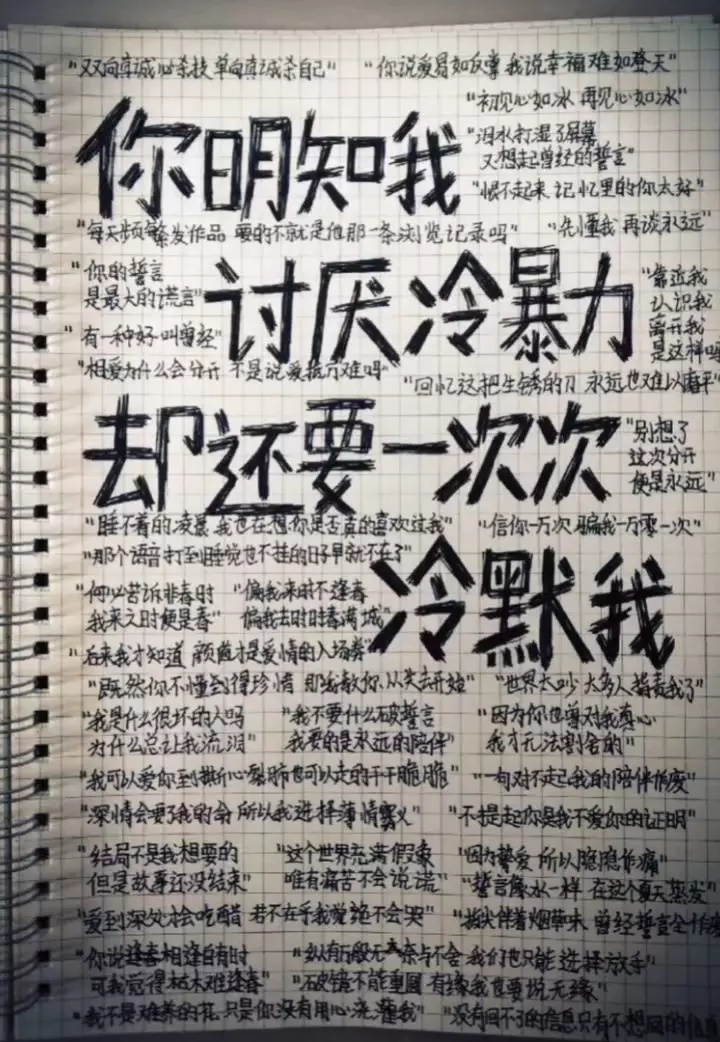 "双向真诚必杀技 单向真诚杀自己" "你说爱易如反掌 我说幸福难如登天"
"初见心如冰 再见心如冰"
你明知我
"泪水打湿了屏幕
又想起曾经的誓言"
"恨不起来 记忆里的你太好"
"每天频繁发作品 要的不就是他那一条浏览记录吗" "先懂我 再谈永远"
"你的誓言
是最大的谎言"
讨厌冷暴力
"靠近我
认识我
离开我
是这样吗
"有一种好 叫曾经"
"相爱为什么会分开 不是说爱抵万难吗"
"回忆这把生锈的刀 永远也难以痊平"
却还要一次次
"别想了
这次分开
便是永远"
"睡不着的凌晨 我也在想你是否真的喜欢过我" "信你一万次 骗我一万零一次"
"那个语音打到睡觉也不挂的日子早就不在了"
冷默我
"何必苦诉非春时
我来之时便是春"
"偏我来时不逢春
偏我去时时春满城"
"后来我才知道 颜值才是爱情的入场券"
"既然你不懂到得珍惜 那我教你从失去开始" "世界太吵 太多人指责我了"
"我是什么很坏的人吗
为什么总让我流泪"
"我不要什么破誓言
我要的是永远的陪伴"
"因为你也曾对我真心
我才无法割舍的"
"我可以爱你到撕心裂肺也可以走的干干脆脆" "一句对不起我的陪伴作废"
"深情会要了我的命 所以我选择薄情寡义" "不提起你是我不爱你的证明"
"结局不是我想要的
但是故事还没结束"
"这个世界充满假象
唯有痛苦不会说谎"
"因为挚爱 所以隐隐作痛"
"誓言像水一样 在这个夏天蒸发"
"爱到深处才会吃醋 若不在乎我觉绝不会哭" "指尖伴着烟草味 曾经誓言全作废
"你说逢春相逢自有时
可我觉得枯木难逢春"
"纵有万般无奈与不舍 我们也只能选择放手"
"破镜不能重圆 有缘我也要说无缘"
"我不是难养的花 只是你没有用心浇灌我" "没有回不了的信息只有不想回的信息